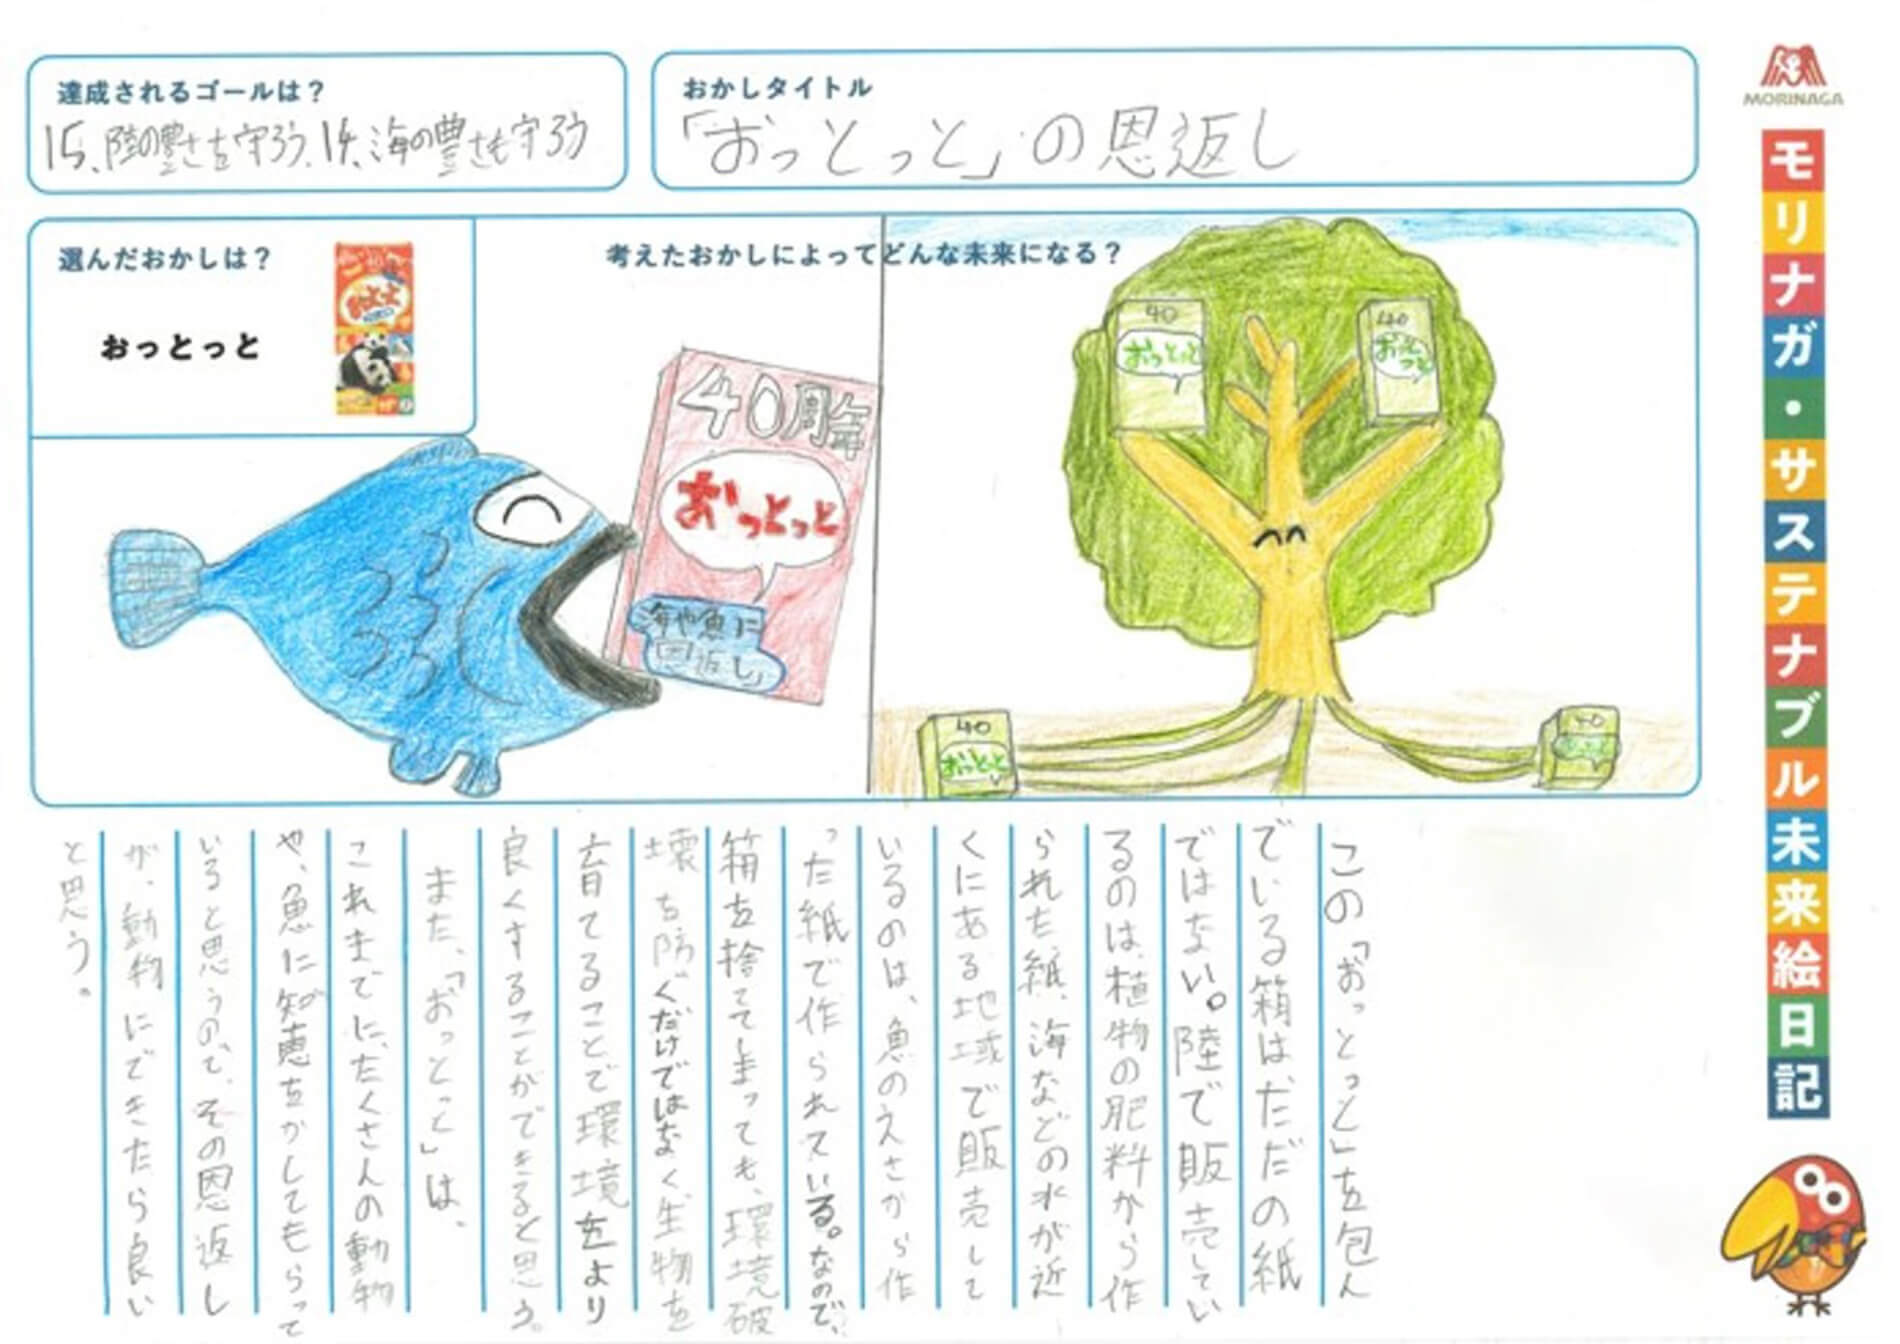 達成されるゴールは？
15、陸の豊さを守ろう、14、海の豊さも守ろう
おかしタイトル
「おっとっと」の恩返し
MORINAGA
モリナガ・サステナブル未来絵日記
選んだおかしは？
おっとっと
おっとっと
考えたおかしによってどんな未来になる？
40周年
おっとっと
海や魚に
恩返し
40
おっとっと
40
おっとっと
40
おっとっと
40
この「おっとっと」を包ん
でいる箱はただの紙
ではない。陸で販売してい
るのは、植物の肥料から作
られた紙、海などの水が近
くにある地域で販売して
いるのは、魚のえさから作
った紙で作られている。なので、
箱を捨ててしまっても、環境破
壊を防ぐだけではなく生物を
育てることで環境をより
良くすることができると思う。
また、「おっとっと」は、
これまでに、たくさんの動物
や、魚に知恵をかしてもらって
いると思うので、その恩返し
が、動物にできたら良い
と思う。